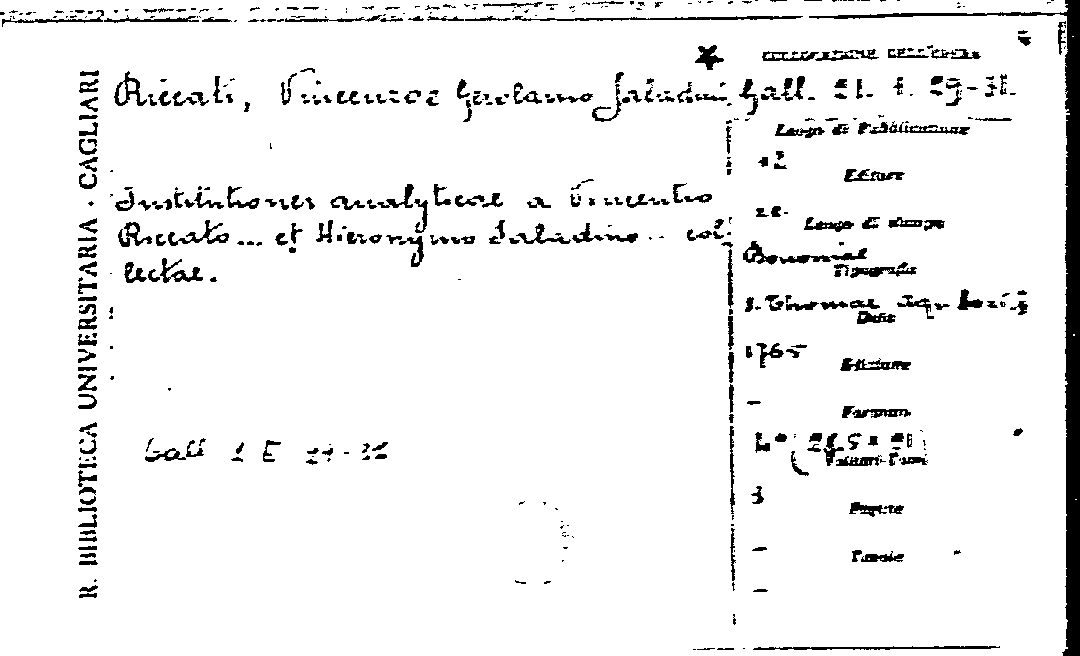 R. BIBLIOTECA UNIVERSITARIA · CAGLIARI
Riccati, Vincenzo e Gerolamo Saladini
Institutiones analyticae a Vincentio
Riccato... et Hieronymo Saladino... col
lectae.
Gall
COLLOCAZIONE DELL'OPERA
Gall. 21. 29-31.
Luogo di Pubblicazione
Editore
Luogo di stampa
Bononiae
Tipografia
S. Thomae
Data
1765
Edizione
—
Formato
Volumi-Tomi
3
Pagine
—
Tavole
—